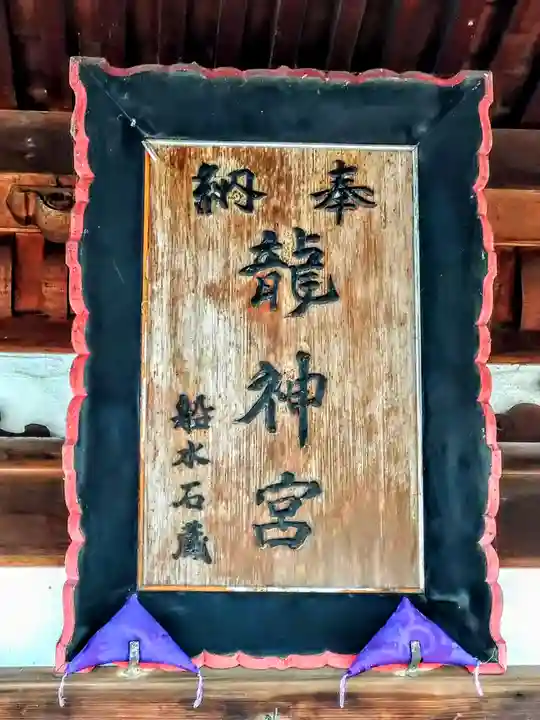 奉納
龍神宮
船水石蔵